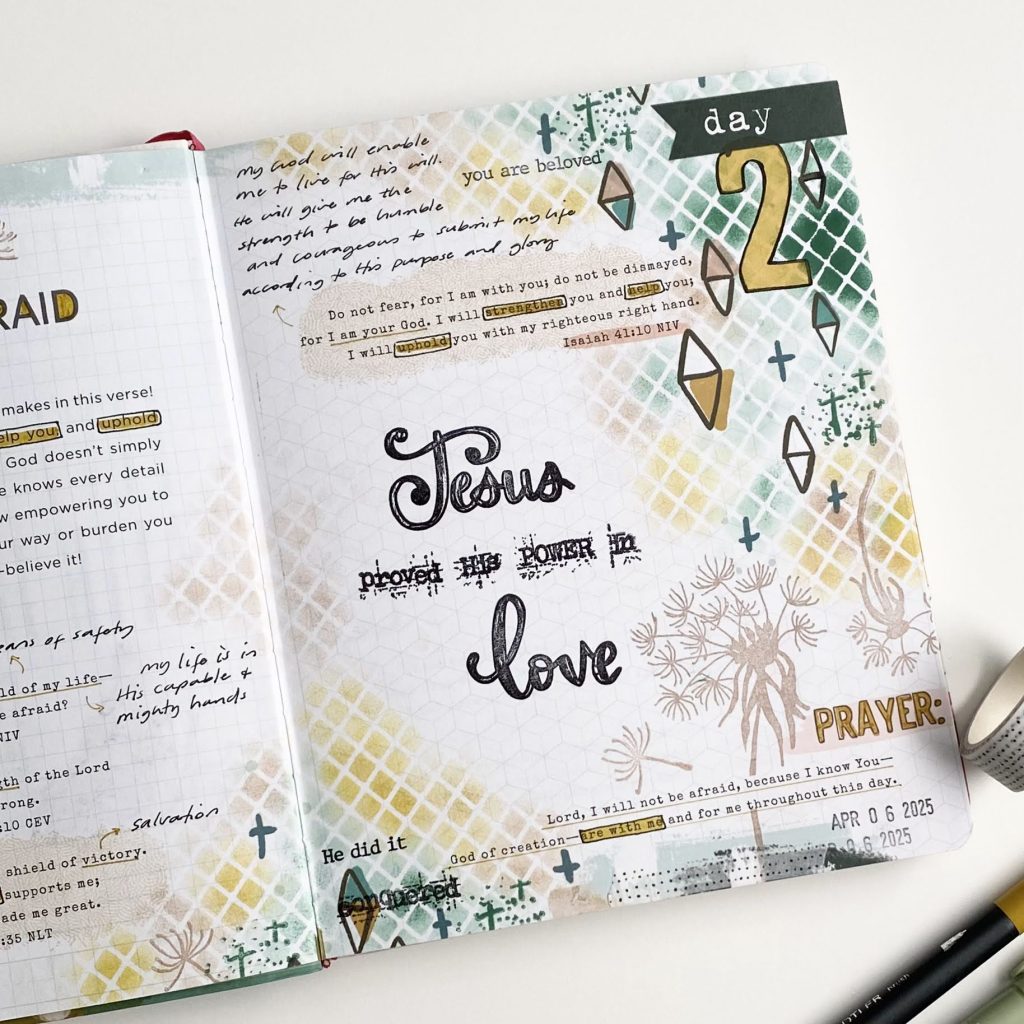 RAID
makes in this verse!
elp you, and uphold
God doesn't simply
e knows every detail
w empowering you to
ur way or burden you
-believe it!
eans of safety
ld of my life—
e afraid?
NIV
my life is in
His capable &
mighty hands
gth of the Lord
rong.
:10 CEV
salvation
shield of victory.
supports me;
ade me great.
:35 NLT
day
2
My God will enable
me to live for His will.
He will give me the
strength to be humble
and courageous to submit my life
according to His purpose and glory
you are beloved
Do not fear, for I am with you; do not be dismayed,
for I am your God. I will strengthen you and help you;
I will uphold you with my righteous right hand.
Isaiah 41:10 NIV
Jesus
proved His POWER in
love
PRAYER:
Lord, I will not be afraid, because I know You—
God of creation—are with me and for me throughout this day.
APR 0 6 2025
6 2025
He did it
conquered